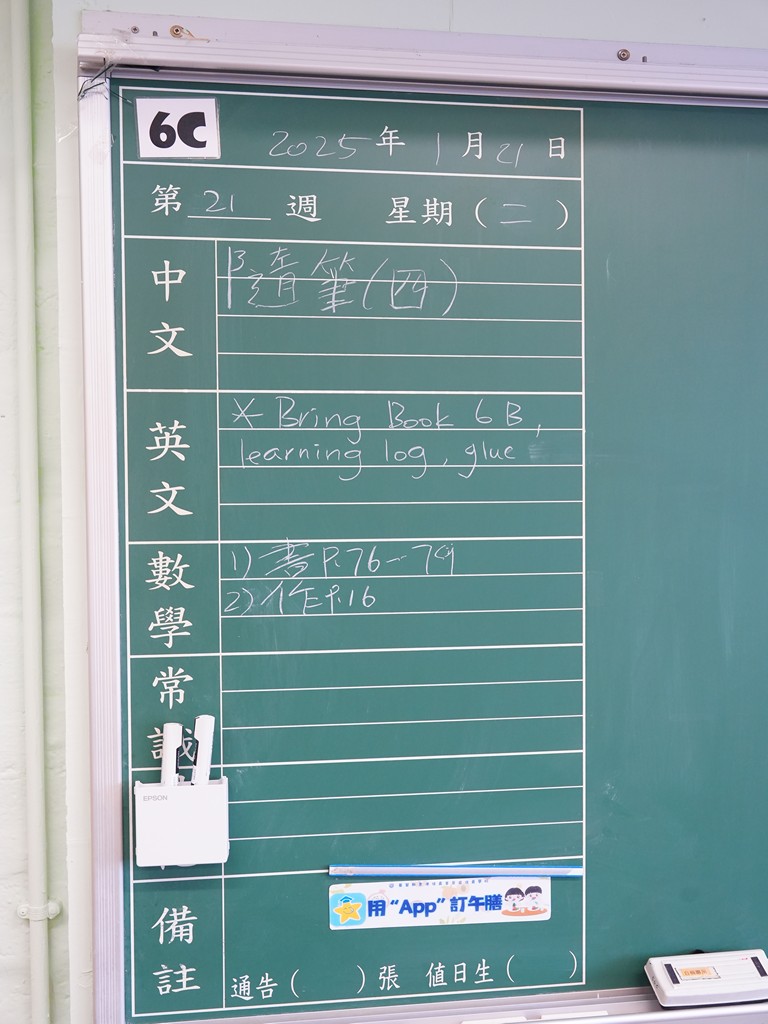 6C
2025年1月21日
第21週 星期（二）
中文
隨筆(四)
英文
* Bring Book 6B,
learning log, glue
數學
1) 書P.76-79
2) 作P.16
常識
EPSON
用“App”訂午膳
備註
通告（ ）張 值日生（ ）